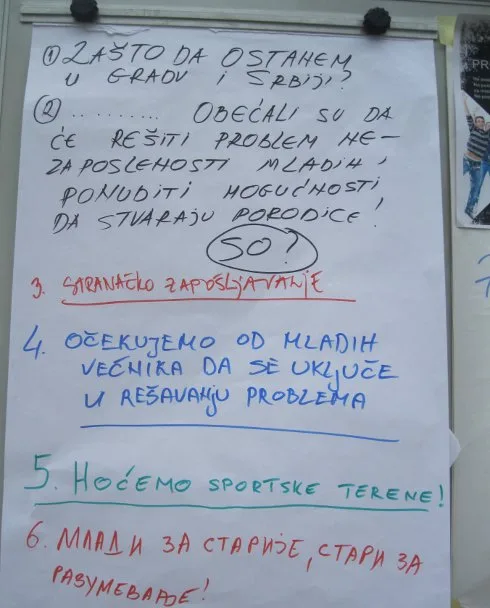 ① ZAŠTO DA OSTANEM
U GRADU I SRBIJI?
② .......... OBEĆALI SU DA
ĆE REŠITI PROBLEM NE-
ZAPOSLENOSTI MLADIH,
PONUDITI MOGUĆNOSTI
DA STVARAJU PORODICE!
SO?
3. STRANAČKO ZAPOŠLJAVANJE
4. OČEKUJEMO OD MLADIH
VEĆNIKA DA SE UKLJUČE
U REŠAVANJU PROBLEMA
5. HOĆEMO SPORTSKE TERENE!
6. МЛАДИ ЗА СТАРИЈЕ, СТАРИ ЗА
РАЗУМЕВАЊЕ!
PR